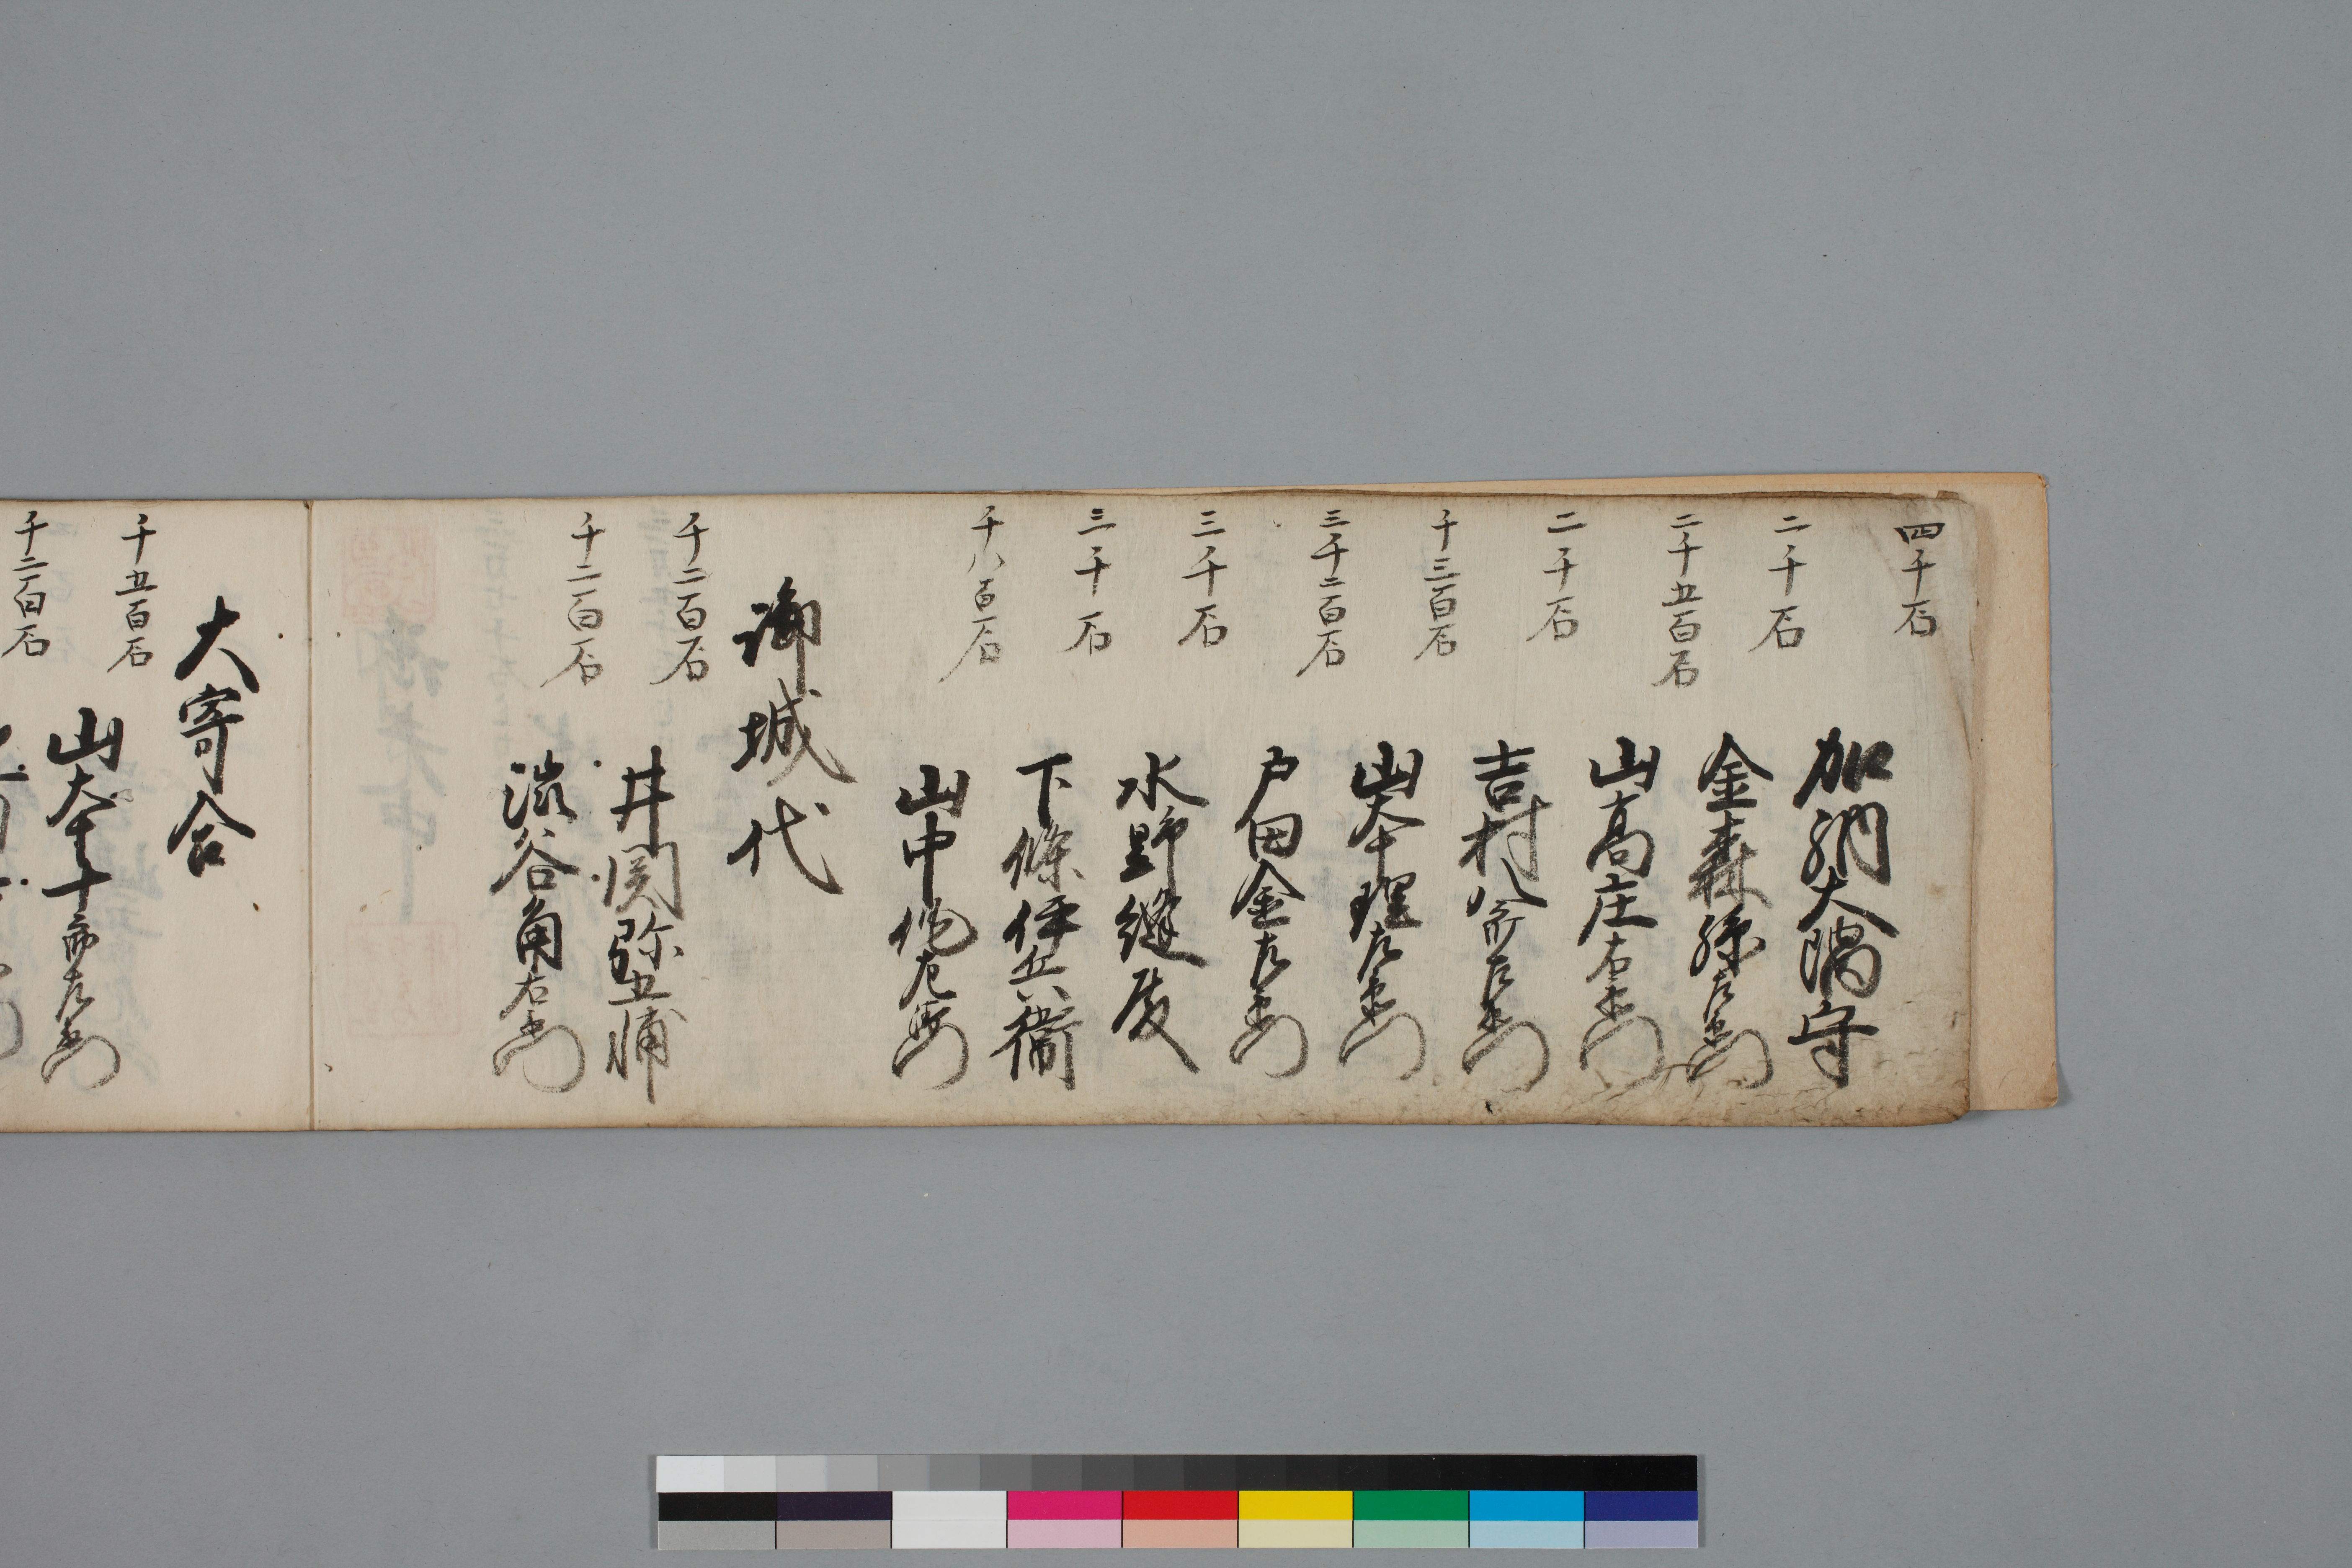 四千石
加納大隅守
二千石
金森孫右衛門
二千五百石
山高庄右衛門
二千石
吉村八右衛門
千三百石
山本理左衛門
三千二百石
戸田金左衛門
三千石
水野縫殿
三千石
下條伊兵衛
千八百石
山中
御城代
千二百石
井関弥五浦
千二百石
渋谷角右衛門
大寄合
千五百石
山本十郎左衛門
千二百石